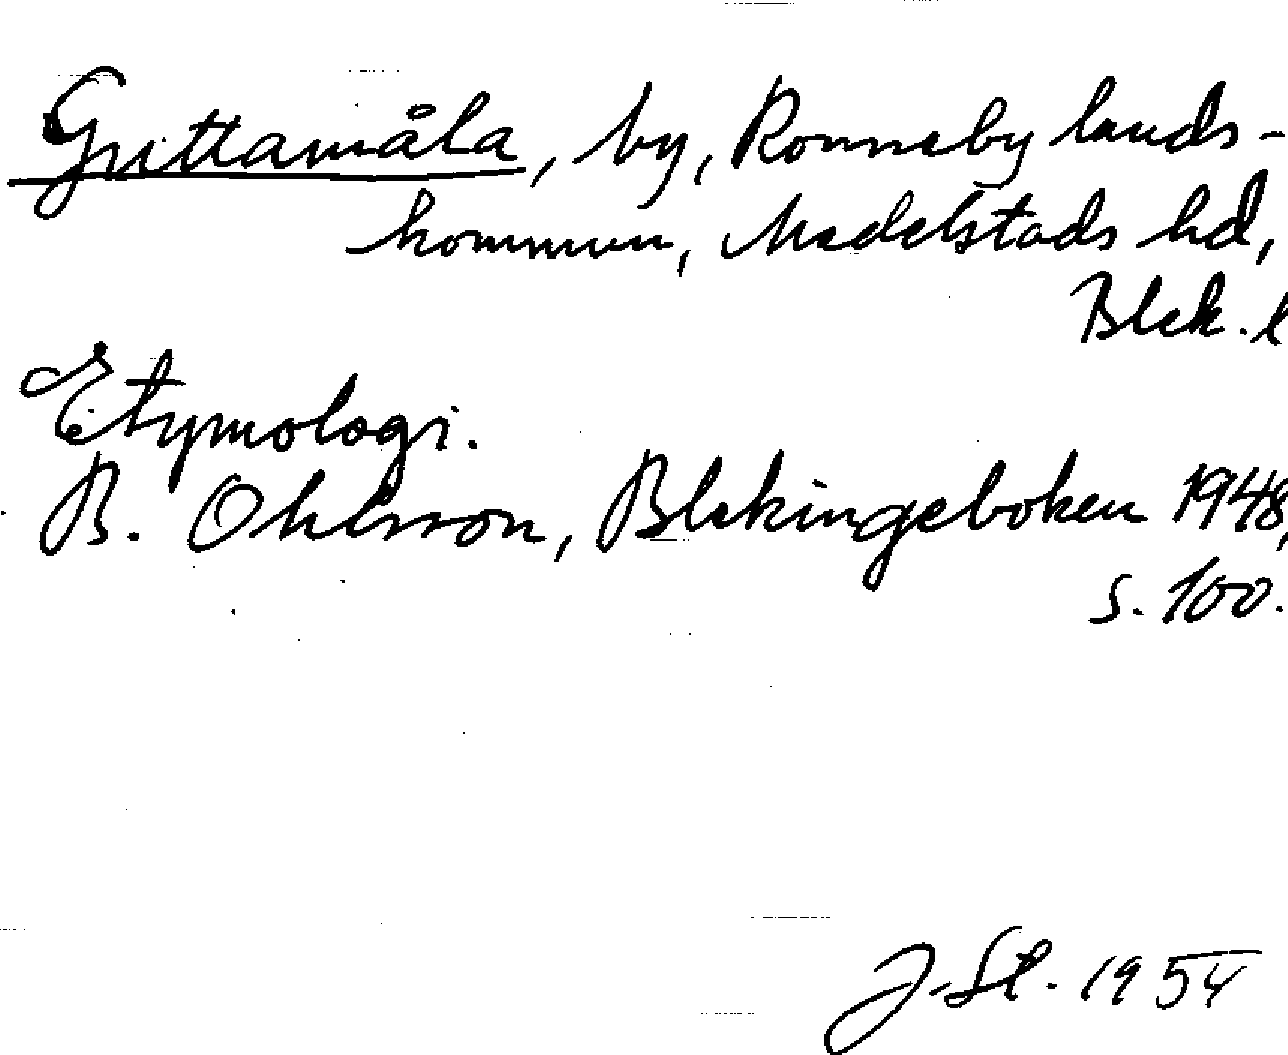 Grittamåla, by, Ronneby lands-
kommun, Medelstads hd,
Blek. l
Etymologi.
B. Ohlsson, Blekingeboken 1948,
s. 100.
J. St. 1954